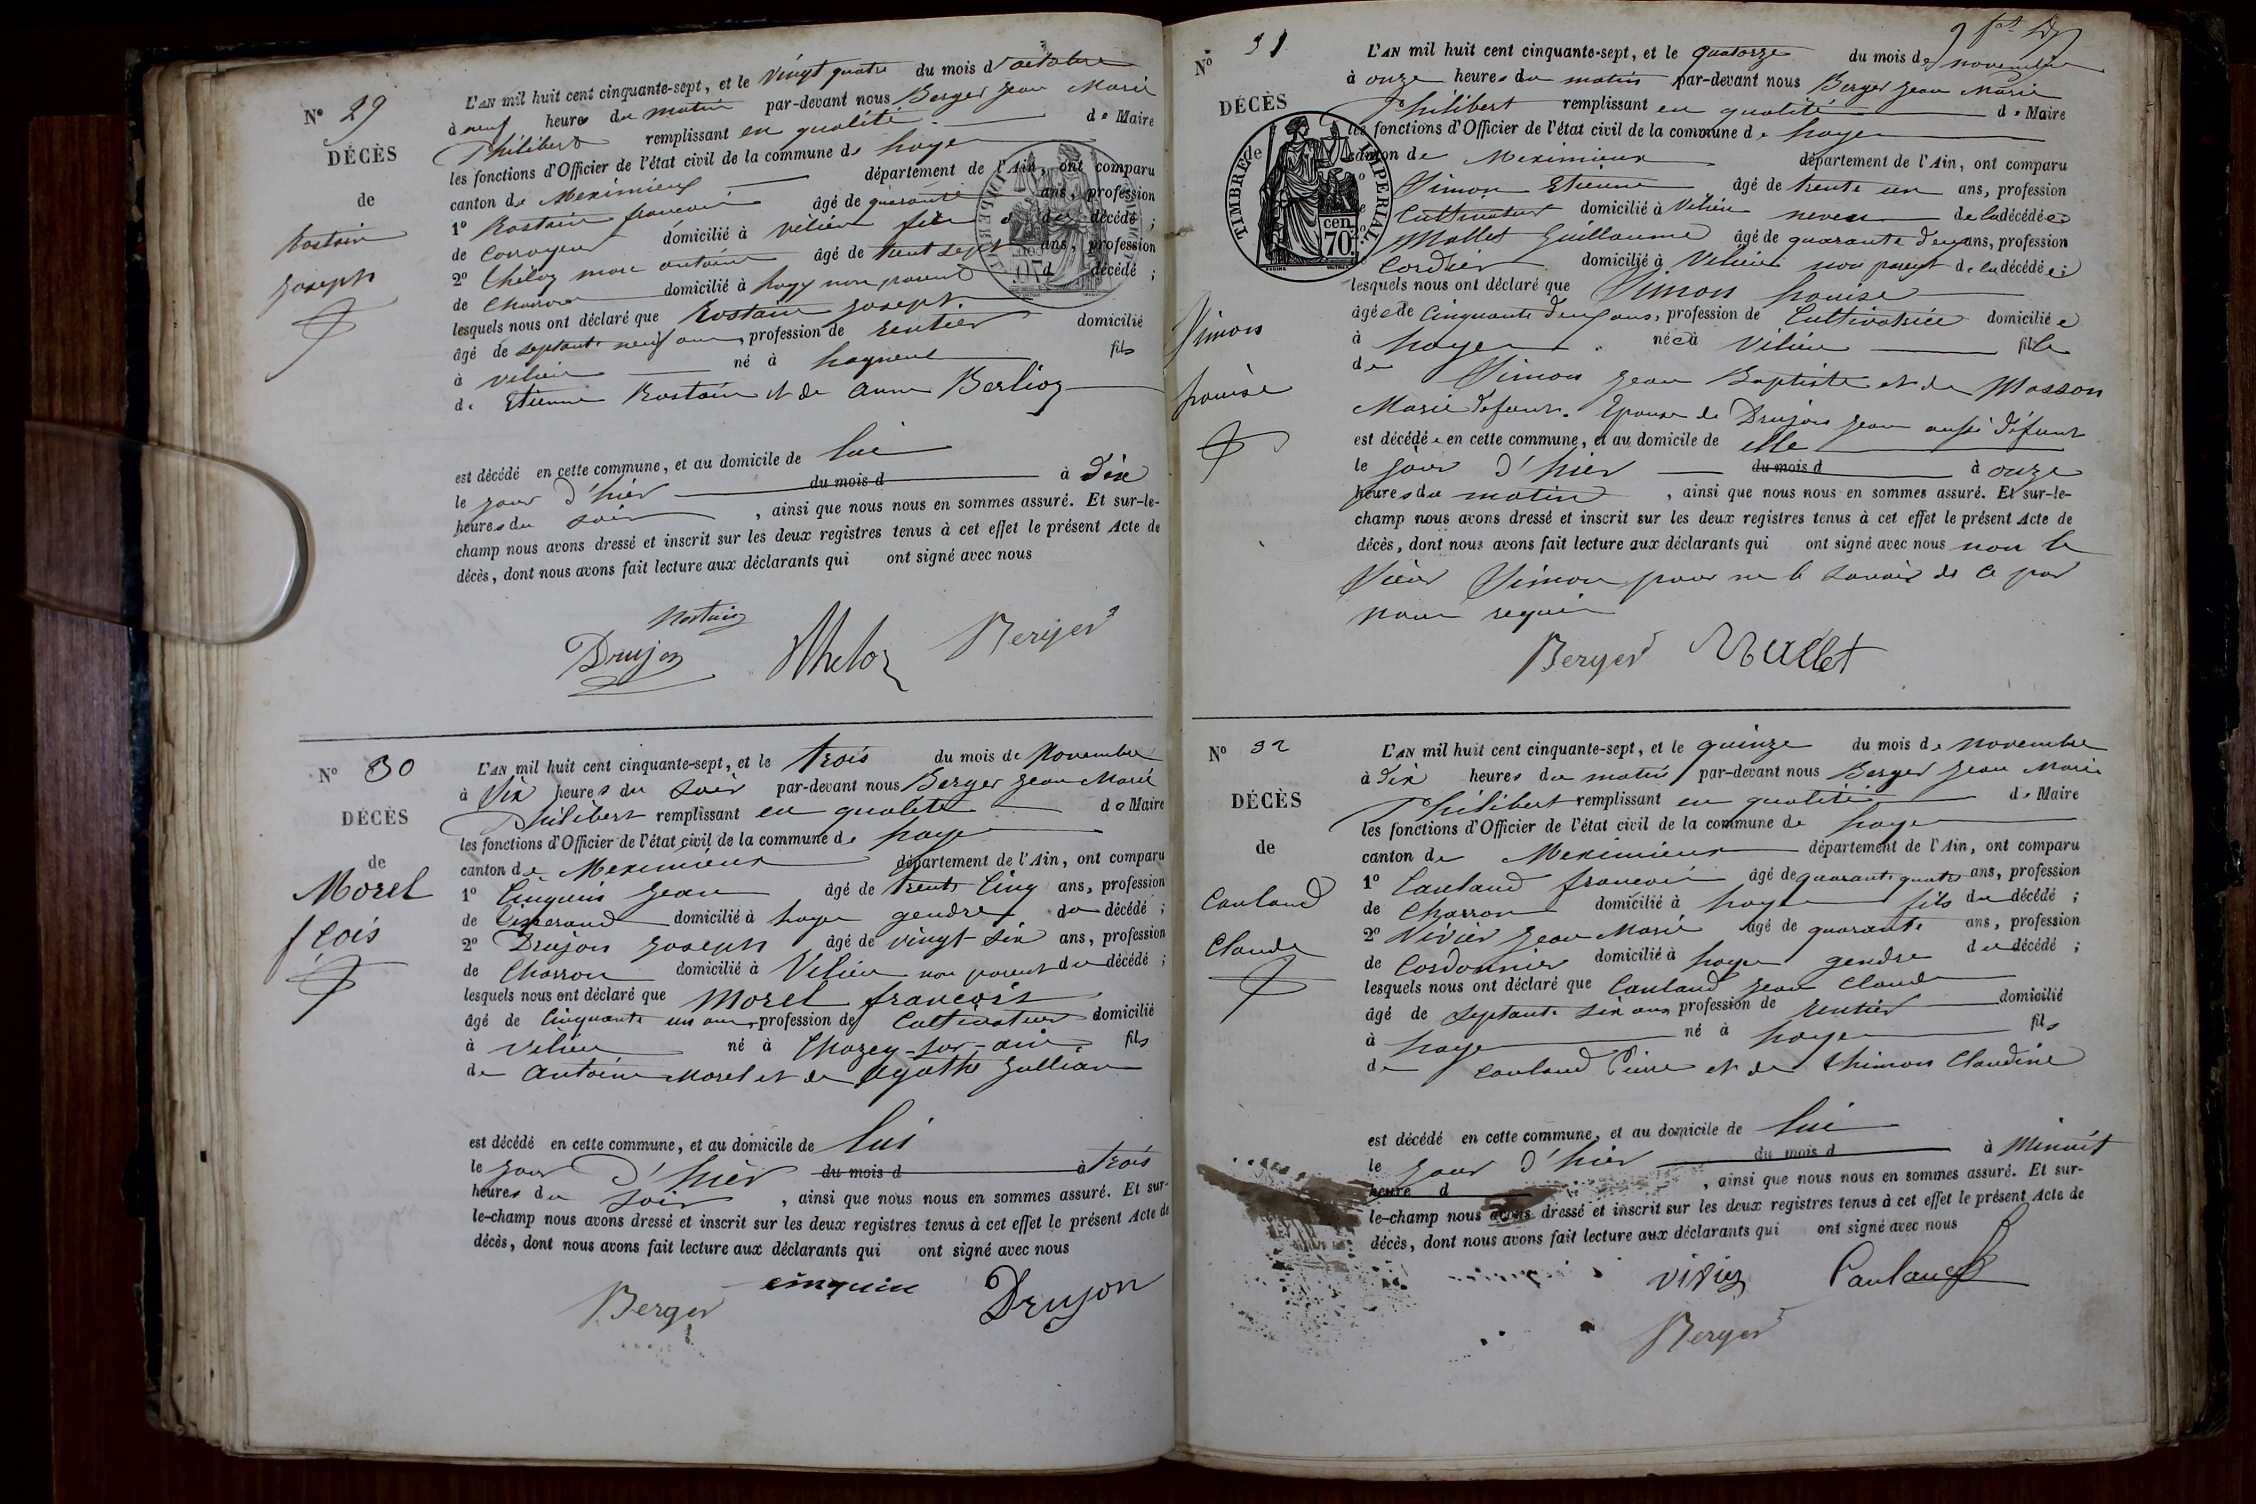 N° 29
DÉCÈS
de
Rostain
Joseph
L'AN mil huit cent cinquante-sept, et le vingt quatre du mois d'octobre
à neuf heures du matin par-devant nous Berger Jean Marie
Philibert remplissant en qualité de Maire
les fonctions d'Officier de l'état civil de la commune de Loyes
canton de Meximieux département de l'Ain, ont comparu
1° Rostain francois âgé de quarante ans, profession
de Corroyeur domicilié à vélieu fils du décédé ;
2° Théloz marc antoine âgé de trent sept ans, profession
de Charron domicilié à non parent d décédé ;
lesquels nous ont déclaré que Rostain Joseph
âgé de septante neuf ans, profession de rentier domicilié
à vélieu né à Lagneux fils
de Etienne Rostain et de anne Berlioz
est décédé en cette commune, et au domicile de lui
le jour d'hier du mois d à dix
heures du soir , ainsi que nous nous en sommes assuré. Et sur-le-
champ nous avons dressé et inscrit sur les deux registres tenus à cet effet le présent Acte de
décès, dont nous avons fait lecture aux déclarants qui ont signé avec nous
Rostain
Drujon Theloz Berger
N° 30
DÉCÈS
de
Morel
fcois
L'AN mil huit cent cinquante-sept, et le trois du mois de Novembre
à Six heures du soir par-devant nous Berger Jean Marie
Philibert remplissant en qualité de Maire
les fonctions d'Officier de l'état civil de la commune de Loyes
canton de Meximieux département de l'Ain, ont comparu
1° Cinquin Jean âgé de trente Cinq ans, profession
de Tisserand domicilié à Loyes gendre du décédé ;
2° Drujon Joseph âgé de vingt-six ans, profession
de Charron domicilié à Vélieu non parent du décédé ;
lesquels nous ont déclaré que Morel francois
âgé de Cinquante un ans, profession de Cultivateur domicilié
à vélieu né à Chazey-sur-ain fils
de antoine Morel et de Agathe Jullian
est décédé en cette commune, et au domicile de lui
le jour d'hier du mois d à trois
heures du soir , ainsi que nous nous en sommes assuré. Et sur-
le-champ nous avons dressé et inscrit sur les deux registres tenus à cet effet le présent Acte de
décès, dont nous avons fait lecture aux déclarants qui ont signé avec nous
Berger cinquin Drujon
N° 31
DÉCÈS
de
TIMBRE IMPERIAL
70 cen
Simon
Louise
L'AN mil huit cent cinquante-sept, et le quatorze du mois de novembre
à onze heures du matin par-devant nous Berger Jean Marie
Philibert remplissant en qualité de Maire
les fonctions d'Officier de l'état civil de la commune de Loyes
canton de Meximieux département de l'Ain, ont comparu
Simon Etienne âgé de trente un ans, profession
Cultivateur domicilié à Vélieu neveu de la décédée
Mallet Guillaume âgé de quarante deux ans, profession
Cordier domicilié à Vélieu non parent de la décédée ;
lesquels nous ont déclaré que Simon Louise
âgée de Cinquante deux ans, profession de Cultivatrice domiciliée
à Loyes née à Vélieu fille
de Simon Jean Baptiste et de Masson
Marie défunts. Epouse de Drujon Jean aussi défunt
est décédée en cette commune, et au domicile de elle
le jour d'hier du mois d à onze
heures du matin , ainsi que nous nous en sommes assuré. Et sur-le-
champ nous avons dressé et inscrit sur les deux registres tenus à cet effet le présent Acte de
décès, dont nous avons fait lecture aux déclarants qui ont signé avec nous non le
sieur Simon pour ne le savoir de ce par
nous requis
Berger Mallet
N° 32
DÉCÈS
de
Cauland
Claude
L'AN mil huit cent cinquante-sept, et le quinze du mois de novembre
à dix heures du matin par-devant nous Berger Jean Marie
Philibert remplissant en qualité de Maire
les fonctions d'Officier de l'état civil de la commune de Loyes
canton de Meximieux département de l'Ain, ont comparu
1° Cauland francois âgé de quarante quatre ans, profession
de Charron domicilié à Loyes fils du décédé ;
2° Vivier Jean Marie âgé de quarante ans, profession
de Cordonnier domicilié à Loyes gendre du décédé ;
lesquels nous ont déclaré que Cauland Jean Claude
âgé de septante six ans profession de rentier domicilié
à Loyes né à Loyes fils
de Cauland Pierre et de thimon Claudine
est décédé en cette commune, et au domicile de lui
le jour d'hier du mois d à Minuit
heure d , ainsi que nous nous en sommes assuré. Et sur-
le-champ nous avons dressé et inscrit sur les deux registres tenus à cet effet le présent Acte de
décès, dont nous avons fait lecture aux déclarants qui ont signé avec nous
Vivier Cauland
Berger